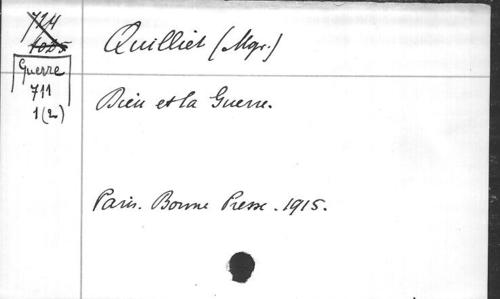 714
1005
Guerre
711
1(2)
Quilliet (Mgr.)
Dieu et la Guerre.
Paris. Bonne Presse. 1915.